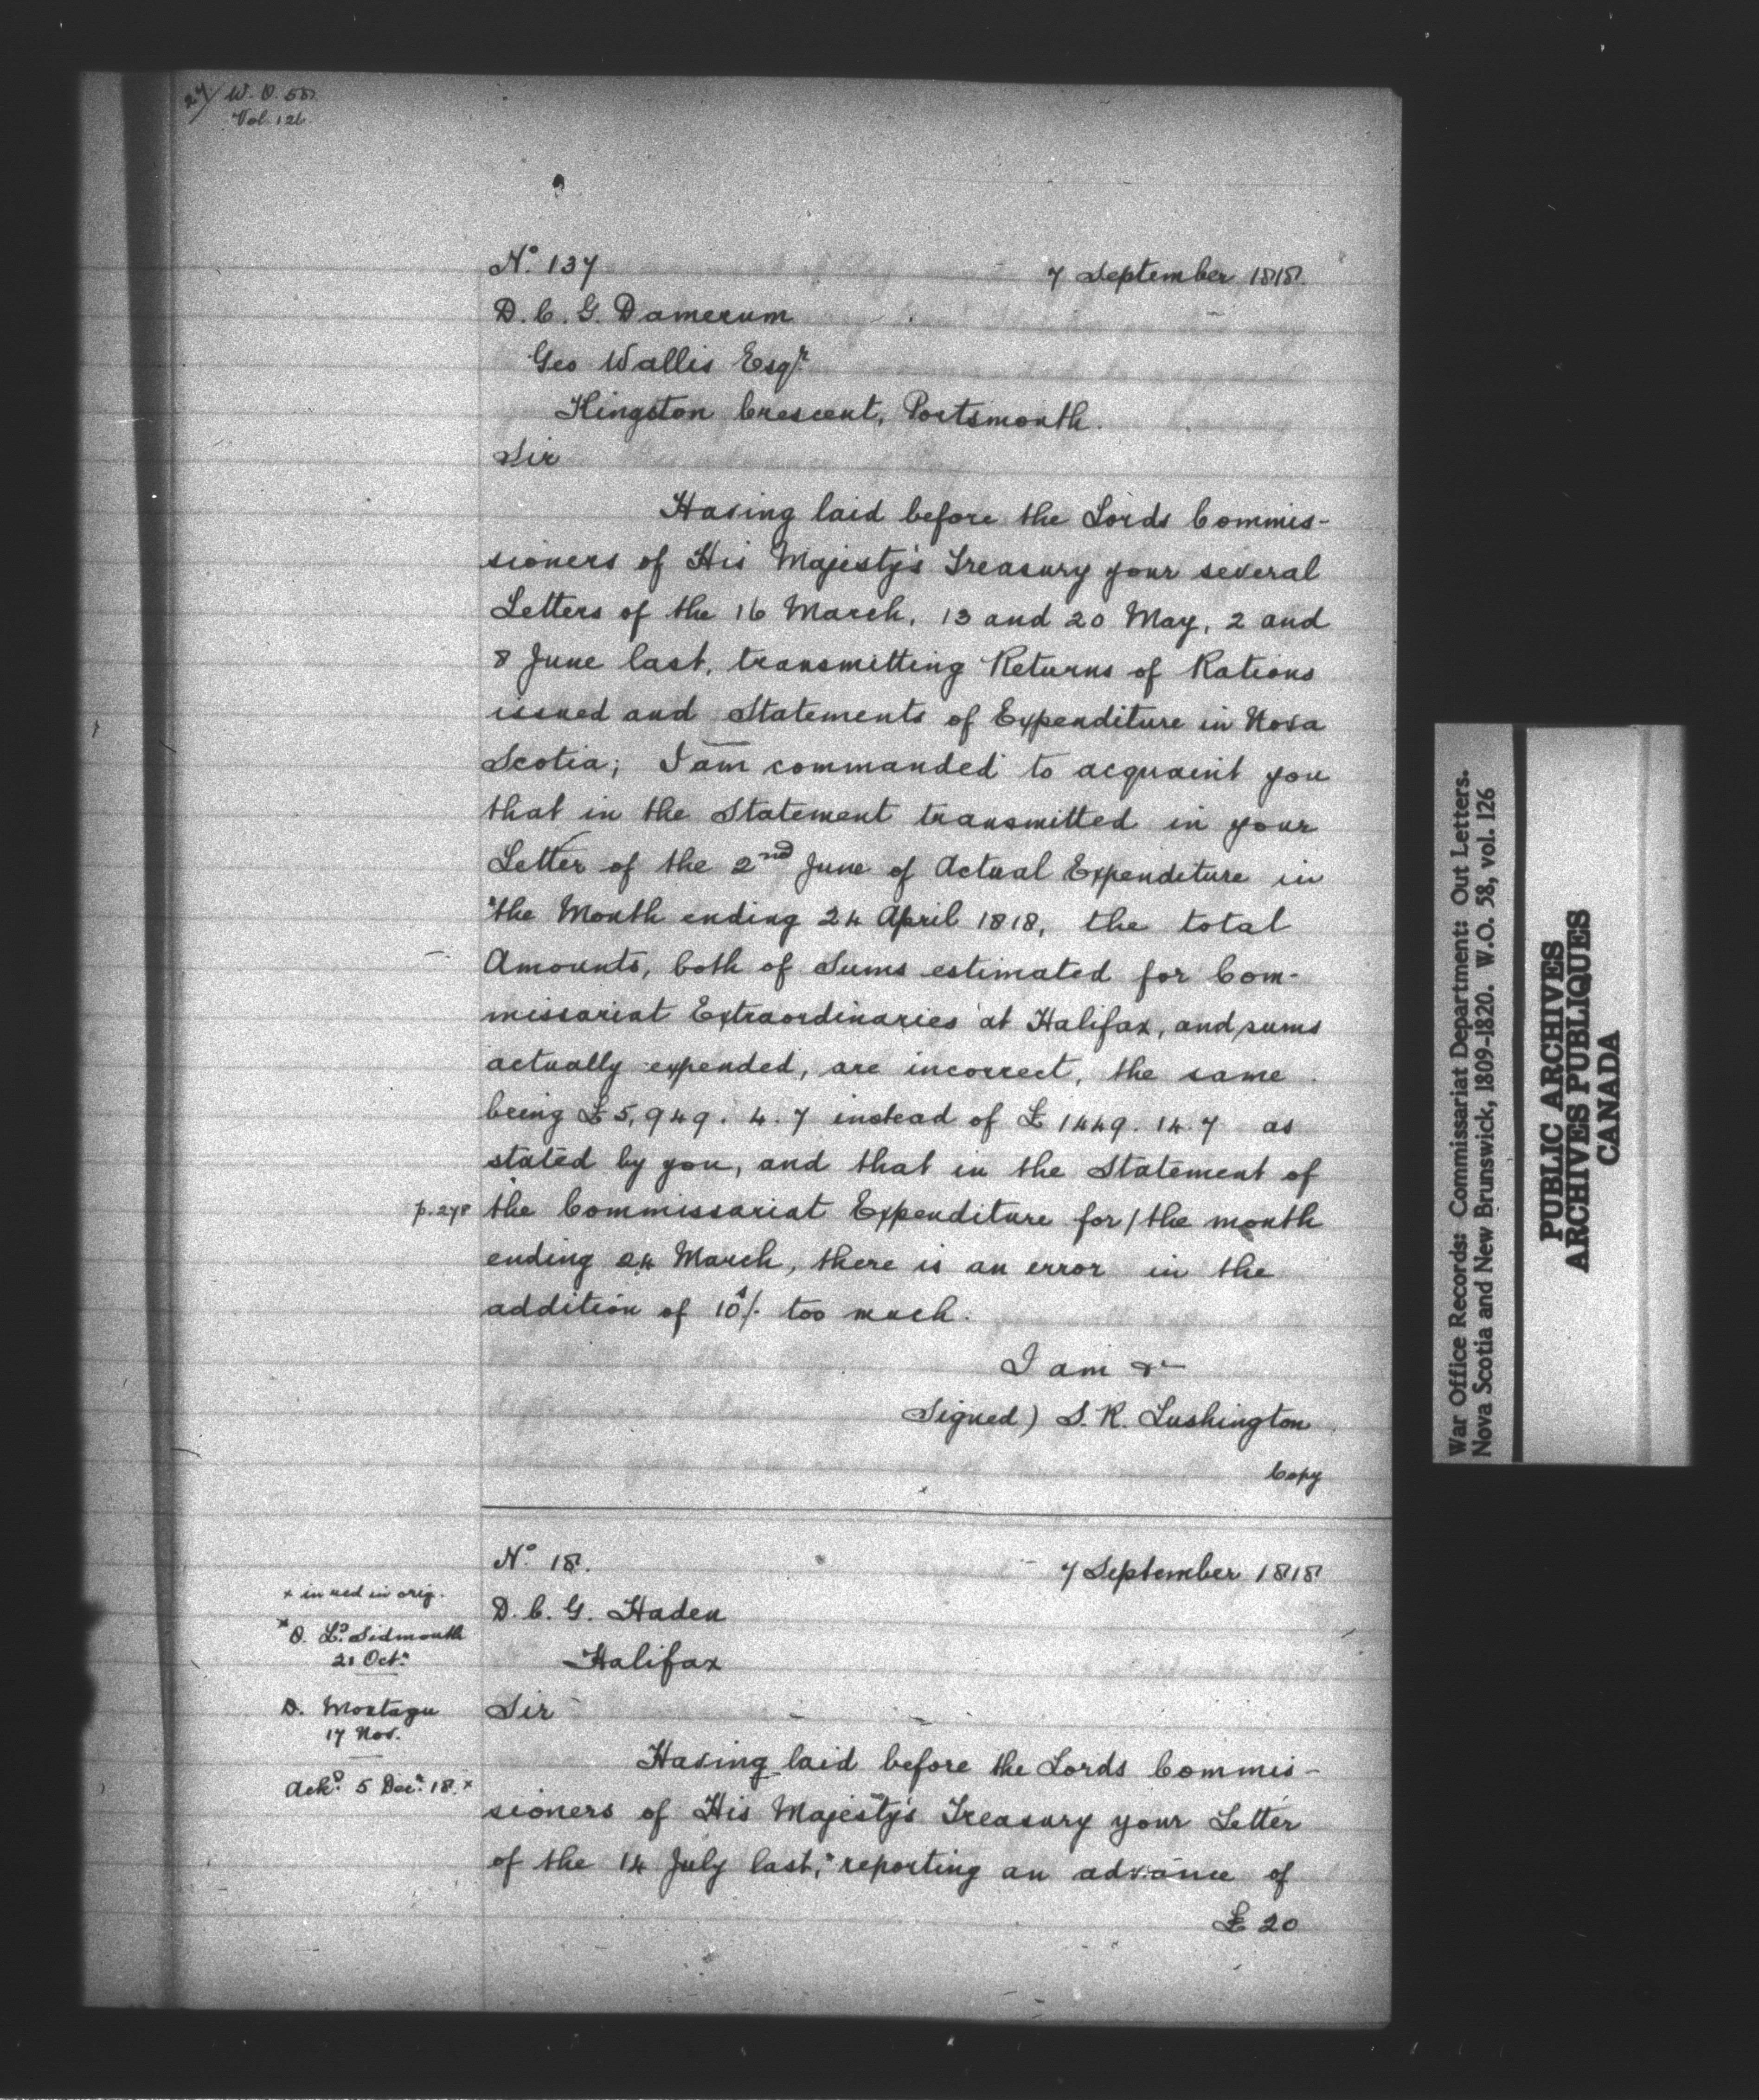 27/ W. O. 58.
Vol. 126.
No. 137
7 September 1818.
D. C. G. Damerum
Geo Wallis Esqr
Kingston Crescent, Portsmouth.
Sir
Having laid before the Lords Commis-
sioners of His Majesty's Treasury your several
Letters of the 16 March, 13 and 20 May, 2 and
8 June last, transmitting Returns of Rations
issued and Statements of Expenditure in Nova
Scotia; I am commanded to acquaint you
that in the Statement transmitted in your
Letter of the 2nd June of Actual Expenditure in
the Month ending 24 April 1818, the total
Amounts, both of Sums estimated for Com-
missariat Extraordinaries at Halifax, and sums
actually expended, are incorrect, the same
being £5,949. 4. 7 instead of £1449. 14. 7 as
stated by you, and that in the Statement of
p. 278 the Commissariat Expenditure for / the month
ending 24 March, there is an error in the
addition of 10s/. too much.
I am &c
Signed) S. R. Lushington
Copy
No. 18.
7 September 1818
x in red in orig.
D. C. G. Haden
x O. Ld. Sidmouth
21 Octr.
Halifax
D. Montagu
17 Nov.
Sir
Ackd. 5 Decr. 18. x
Having laid before the Lords Commis-
sioners of His Majesty's Treasury your Letter
of the 14 July last, reporting an advance of
£20
War Office Records: Commissariat Department: Out Letters.
Nova Scotia and New Brunswick, 1809-1820. W.O. 58, vol. 126
PUBLIC ARCHIVES
ARCHIVES PUBLIQUES
CANADA